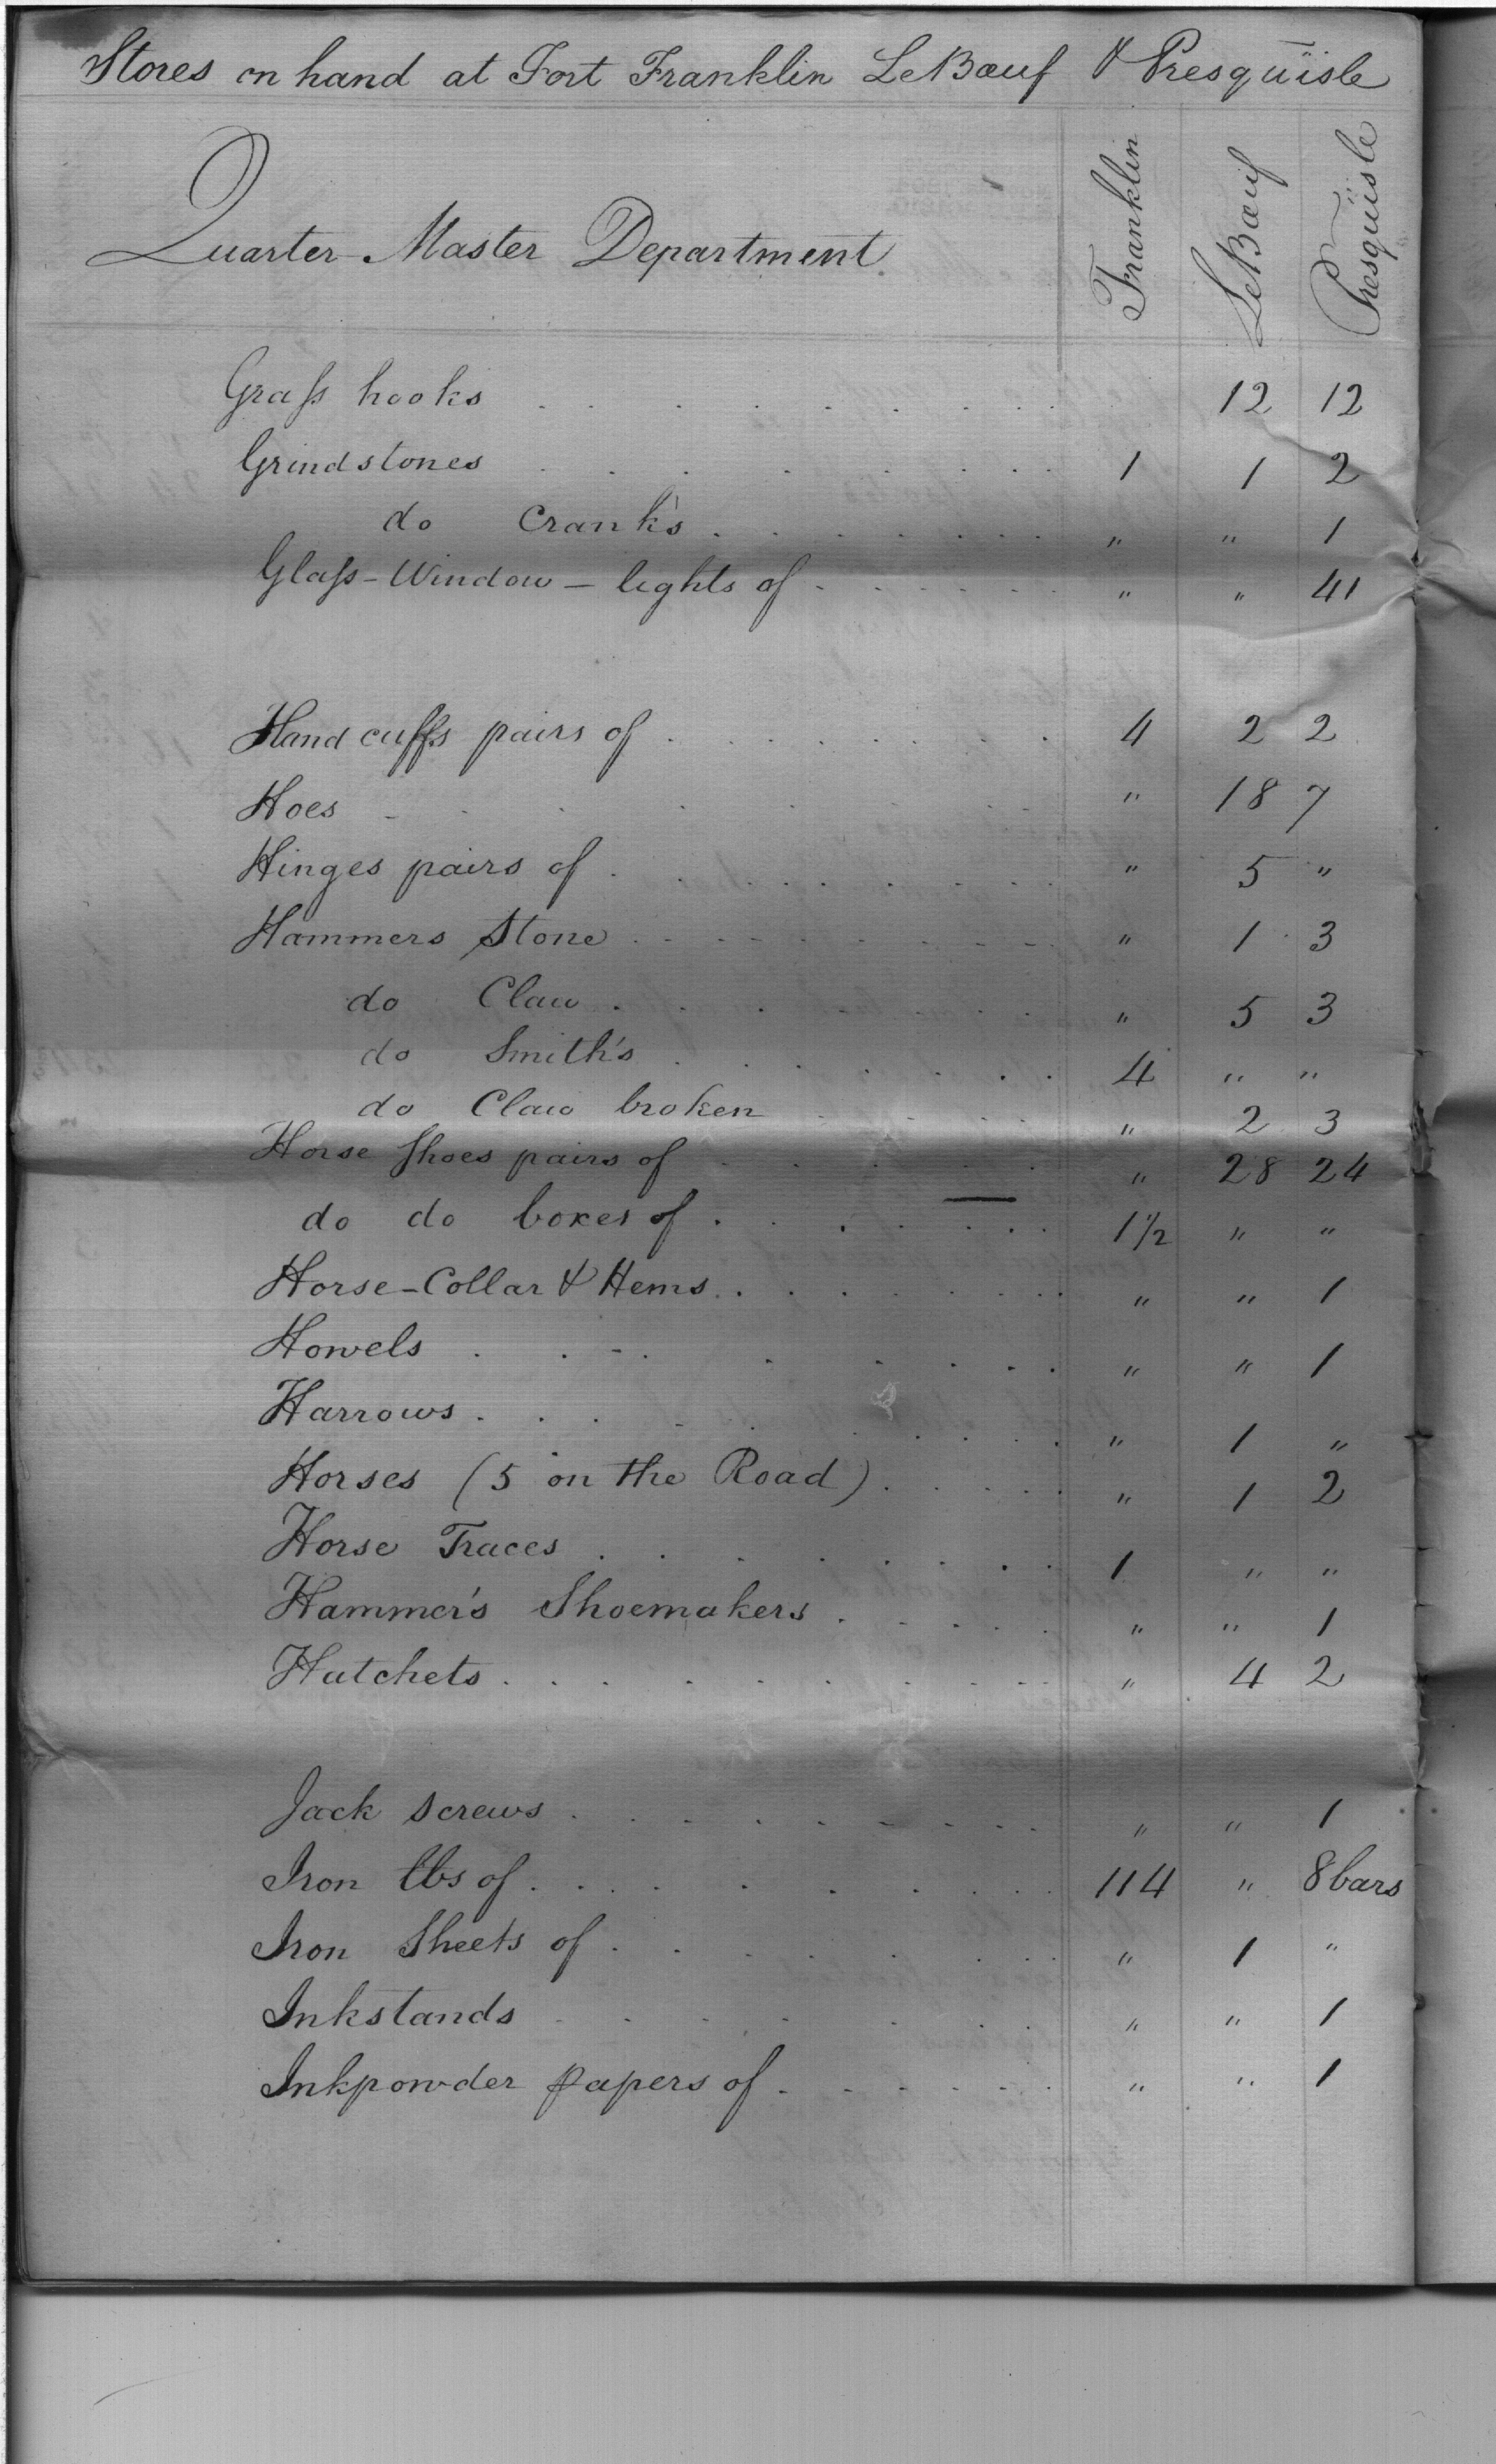 Stores on hand at Fort Franklin LeBœuf & Presqüisle
Quarter-Master Department. Franklin LeBœuf Presqüisle
Grass hooks . . . . . . . . 12 12
Grindstones . . . . . . . . 1 1 2
do Crank's . . . . . . . " " 1
Glass-Window-lights of . . . . . . " " 41
Hand cuffs pairs of . . . . . . . . 4 2 2
Hoes . . . . . . . . " 18 7
Hinges pairs of . . . . . . . . " 5 "
Hammers Stone . . . . . . . . " 1 3
do Claw . . . . . . . . " 5 3
do Smith's . . . . . . . 4 " "
do Claw broken . . . . " 2 3
Horse Shoes pairs of . . . . . . " 28 24
do do boxes of . . . . . . 1 1/2 " "
Horse-Collar & Hems . . . . . . . " " 1
Howels . . . . . . . . " " 1
Harrows . . . . . . . . " 1 "
Horses (5 on the Road) . . . . . " 1 2
Horse Traces . . . . . . . 1 " "
Hammer's Shoemakers . . . . . " " 1
Hatchets . . . . . . . . " 4 2
Jack screws . . . . . . . . " " 1
Iron lbs of . . . . . . . . 114 " 8 bars
Iron Sheets of . . . . . . . . " 1 "
Inkstands . . . . . . . " " 1
Inkpowder papers of . . . . . . " " 1